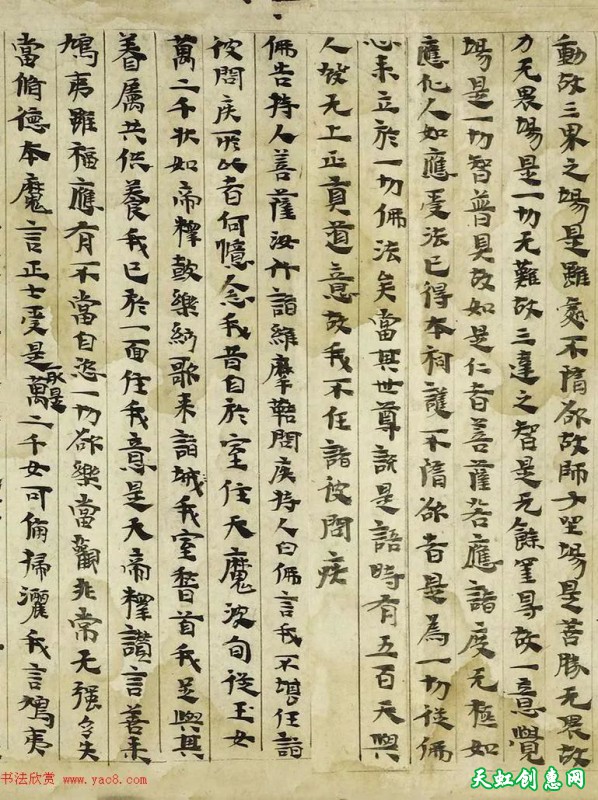 動故三界之場是雖處不隋欲故師子坐場是善勝无畏故
力无畏場是一切无難故三達之智是无餘罣㝵故一意覺
場是一切智普具故如是仁者菩薩若應諸度无極如
應化人如應受法已得本祠護不隋欲者是為一切從佛
心来立於一切佛法矣當其世尊説是語時有五百天與
人發无上正真道意故我不任詣彼問疾
佛告持人菩薩汝行詣維摩詰問疾持人白佛言我不堪任詣
彼問疾所以者何憶念我昔自於室住天魔波旬從玉女
萬二千狀如帝釋鼓樂絃歌来詣城我室稽首我足與其
眷屬共供養我已於一面住我意是天帝釋讚言善来
鳩夷雖福應有不當自恣一切欲樂當觀非常无强多失
當脩德本魔言正士受是萬二千女可備掃灑我言鳩夷
书法欣赏 www.yac8.com
天虹创惠网